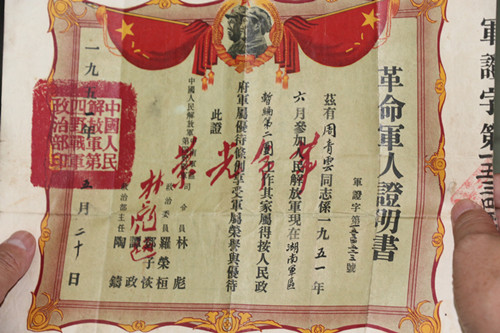 革命軍人證明書
軍證字第一五三
軍證字第
號
茲有周青雲同志係一九五一年
六月參加人民解放軍現在湖南軍區
工作其家屬得按人民政
府軍屬優待條例享受軍屬榮譽與優待
此證
革命光榮
中國人民解放軍第四野戰軍
司令員林彪
政治委員羅榮桓
鄧子恢
政治部主任
譚政
陶鑄
林彪
一九五一年五月二十日
中國人民
解放軍第
四野戰軍
政治部印